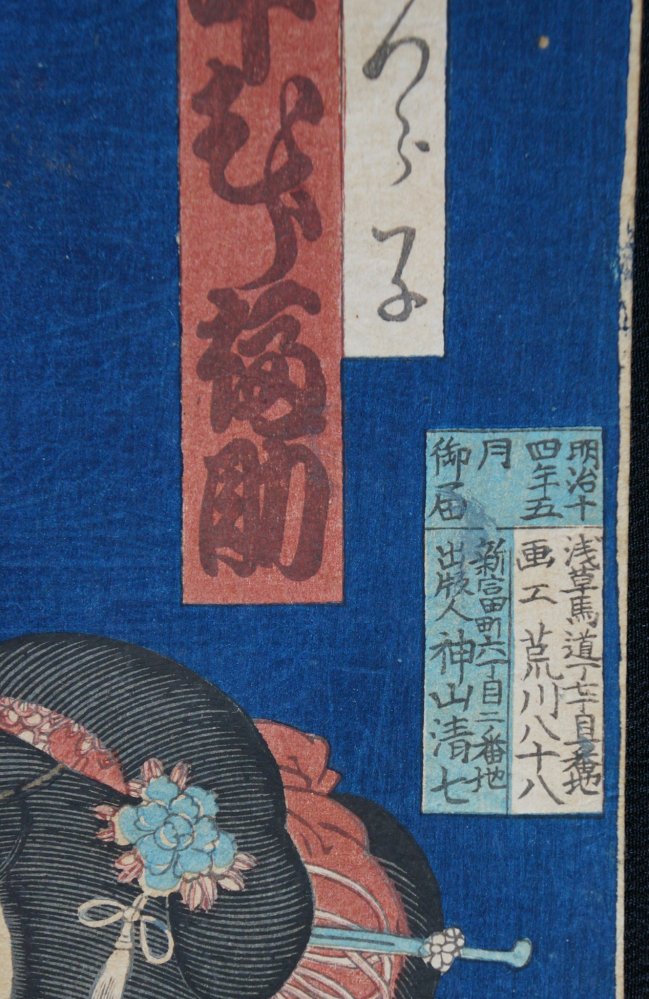 明治十
四年五
月
御届
浅草馬道
画工 荒川八十八
新富町六丁目二番地
出版人 神山清七
つら子
中むら福助